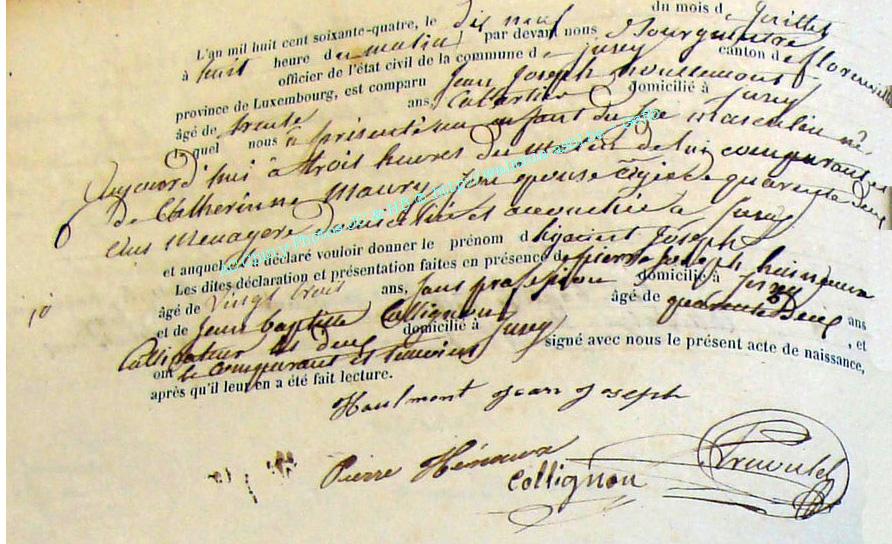 L'an mil huit cent soixante-quatre, le dix neuf du mois de juillet
à huit heure du matin par devant nous Bourgmestre
officier de l'état civil de la commune de Jusey canton de florenville
province de Luxembourg, est comparu Jean Joseph
âgé de trente ans, Cultivateur domicilié à Jusey
lequel nous à présenté un enfant du sexe masculin né
aujourd'hui à trois heures du matin de lui comparant et
de Catherinne Maury son épouse agée de quarante deux
ans Menagere domiciliée et accouchée à Jusey
et auquel il a déclaré vouloir donner le prénom d'hijacint Joseph
Les dites déclaration et présentation faites en présence de pierre joseph
âgé de vingt trois ans, sans profession domicilié à Jusey
et de Jean baptiste Collignon âgé de quarante deux ans
Cultivateur les deux domicilié à Jusey, et
ont le comparant et temoins signé avec nous le présent acte de naissance,
après qu'il leur en a été fait lecture.
Houlmont jean joseph
Pierre
Collignon